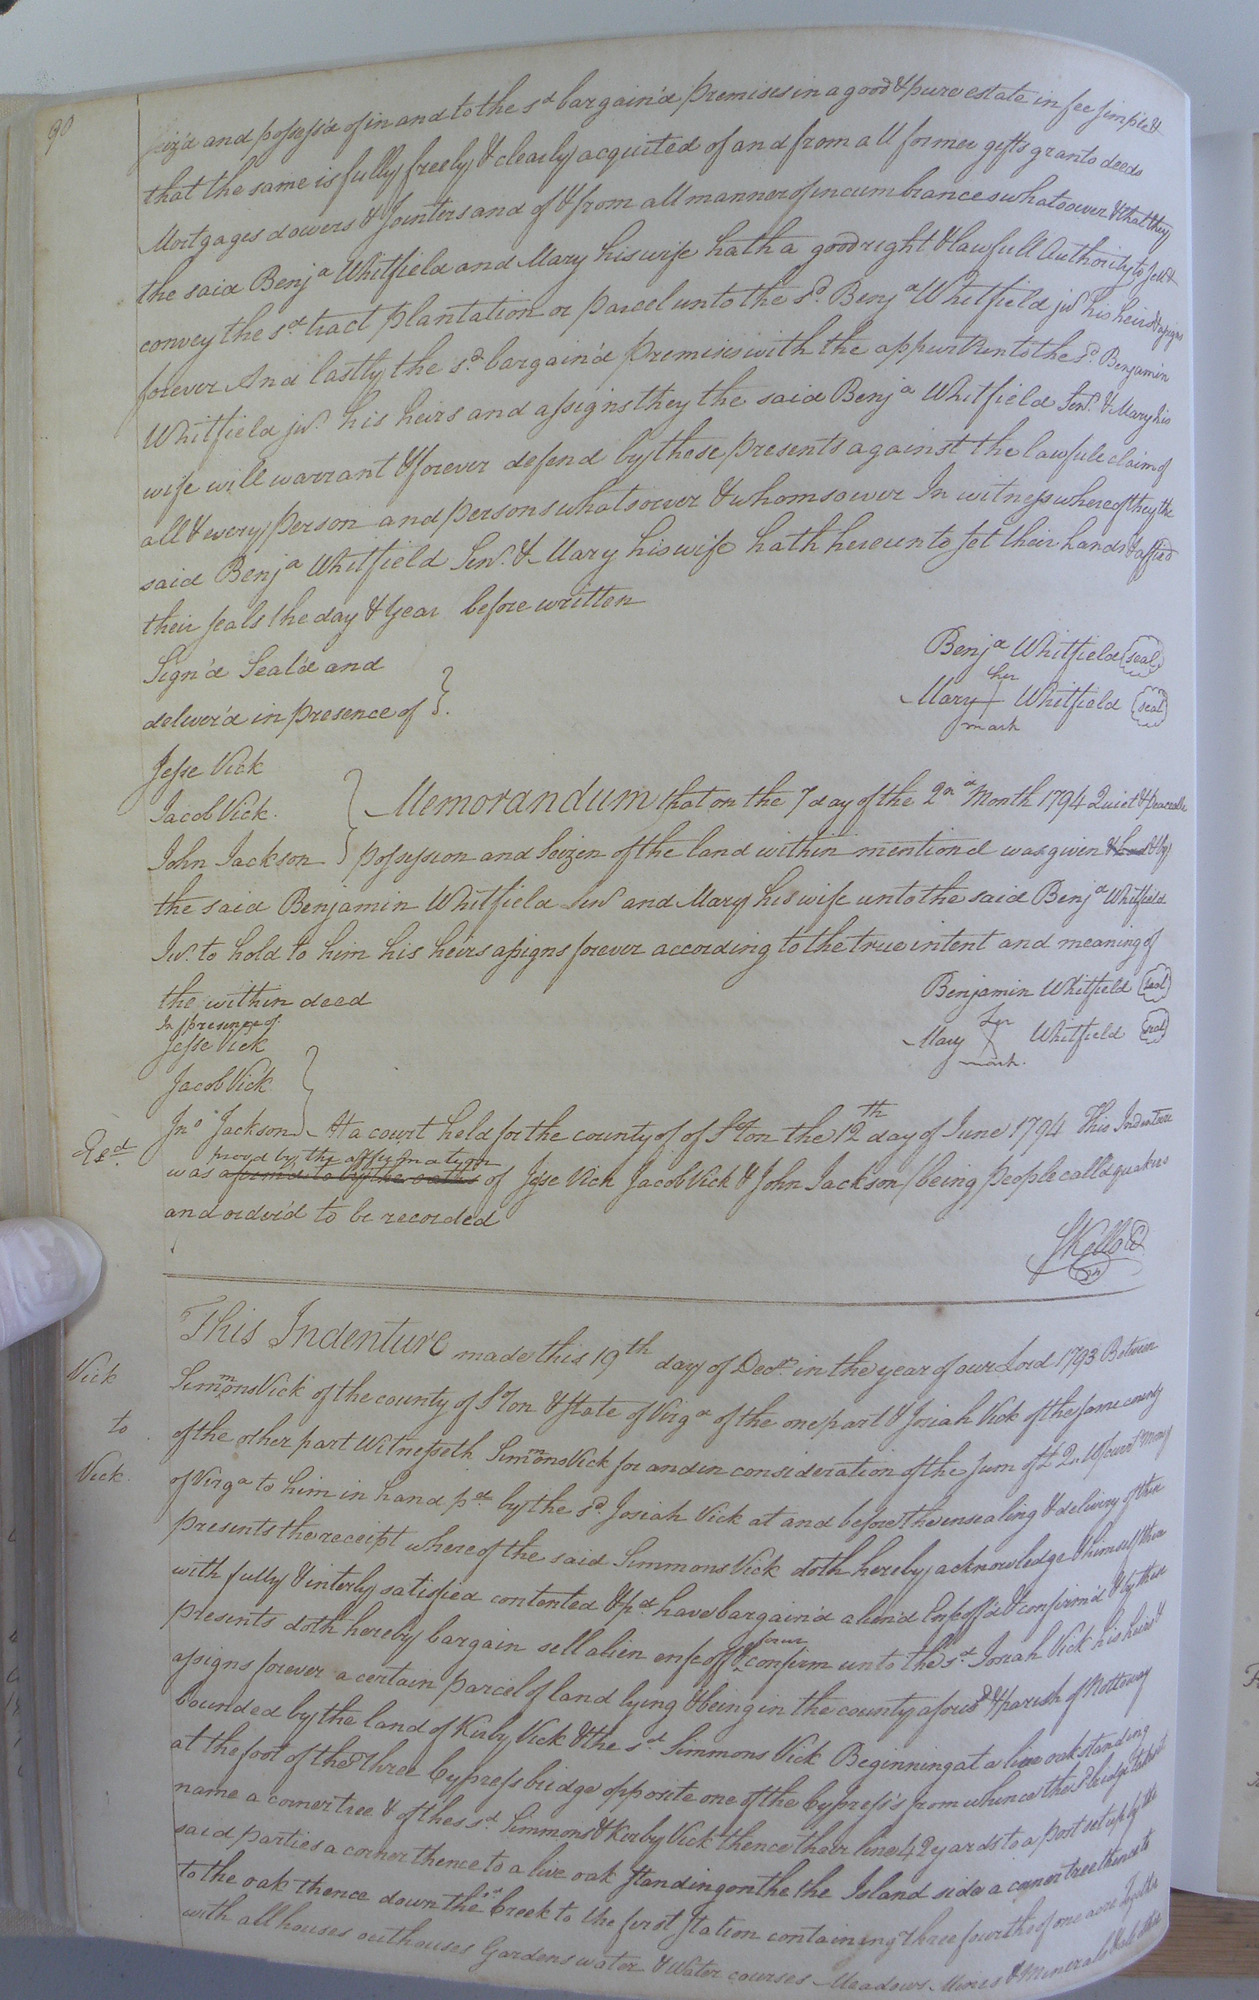 90
seiz'd and possess'd of in and to the sd bargain'd premises in a good & pure estate in fee simple &
that the same is fully freely & clearly acquited of and from all former gifts grants deeds
Mortgages dowers & Jointers and of & from all manner of incumbrances whatsoever & that they
the said Benja Whitfield and Mary his wife hath a good right & lawfull Authority to sell &
convey the sd tract plantation or parcel unto the sd Benja Whitfield jur his heirs & assigns
forever And lastly the sd bargain'd premises with the appurts unto the sd Benjamin
Whitfield jur his heirs and assigns they the said Benja Whitfield Senr & Mary his
wife will warrant & forever defend by these presents against the lawfule claim of
all & every person and persons whatsoever & whomsoever In witness whereof they the
said Benja Whitfield Senr & Mary his wife hath hereunto set their hands & affixd
their seals the day & year before written
Sign'd Seal'd and
deliver'd in presence of
Benja Whitfield seal
her
Mary Whitfield seal
mark
Jesse Vick
Jacob Vick
John Jackson
Memorandum that on the 7 day of the 2nd Month 1794 Quiet & peaceable
possession and Seizen of the land within mentioned was given & had & by
the said Benjamin Whitfield Senr and Mary his wife unto the said Benja Whitfield
Jur. to hold to him his heirs assigns forever according to the true intent and meaning of
the within deed
In presence of
Jesse Vick
Jacob Vick
Jno Jackson
Benjamin Whitfield seal
her
Mary Whitfield seal
mark
At a court held for the county of of Soton the 12th day of June 1794 This Indenture
Exd.
provd by the affirmation
was of Jesse Vick Jacob Vick & John Jackson (being people calld quakers
and order'd to be recorded
S Kello Cl
This Indenture made this 19th day of Decr. in the year of our Lord 1793 Between
Vick
to
Vick.
Simmons Vick of the county of Soton & state of Virga of the one part & Josiah Vick of the same county
of the other part Witnesseth Simmons Vick for and in consideration of the sum of £ 2 curt money
of Virga to him in hand pd by the sd Josiah Vick at and before the ensealing & delivery of these
presents the receipt whereof the said Simmons Vick doth hereby acknowledge & himself there
with fully & interly satisfied contented & pd have bargain'd alien'd Enfeoff'd & confirm'd & by these
presents doth hereby bargain sell alien enfeoff & confirm unto the sd Josiah Vick his heirs &
assigns forever a certain parcel of land lying & being in the county aforesd & parish of Nottoway
bounded by the land of Kirby Vick & the sd Simmons Vick Beginning at a live oak standing
at the foot of the Three Cypress bridge opposite one of the Cypress's from whence the sd bridge takes it
name a corner tree & of the sd Simmons & Kirby Vick thence thair line 42 yards to a post set up by the
said parties a corner thence to a live oak standing on the the Island side a corner tree thence to
to the oak thence down the sd Creek to the first station containing three fourths of one acre together
with all houses outhouses Gardens water & Water courses Meadows Mines & Minerals